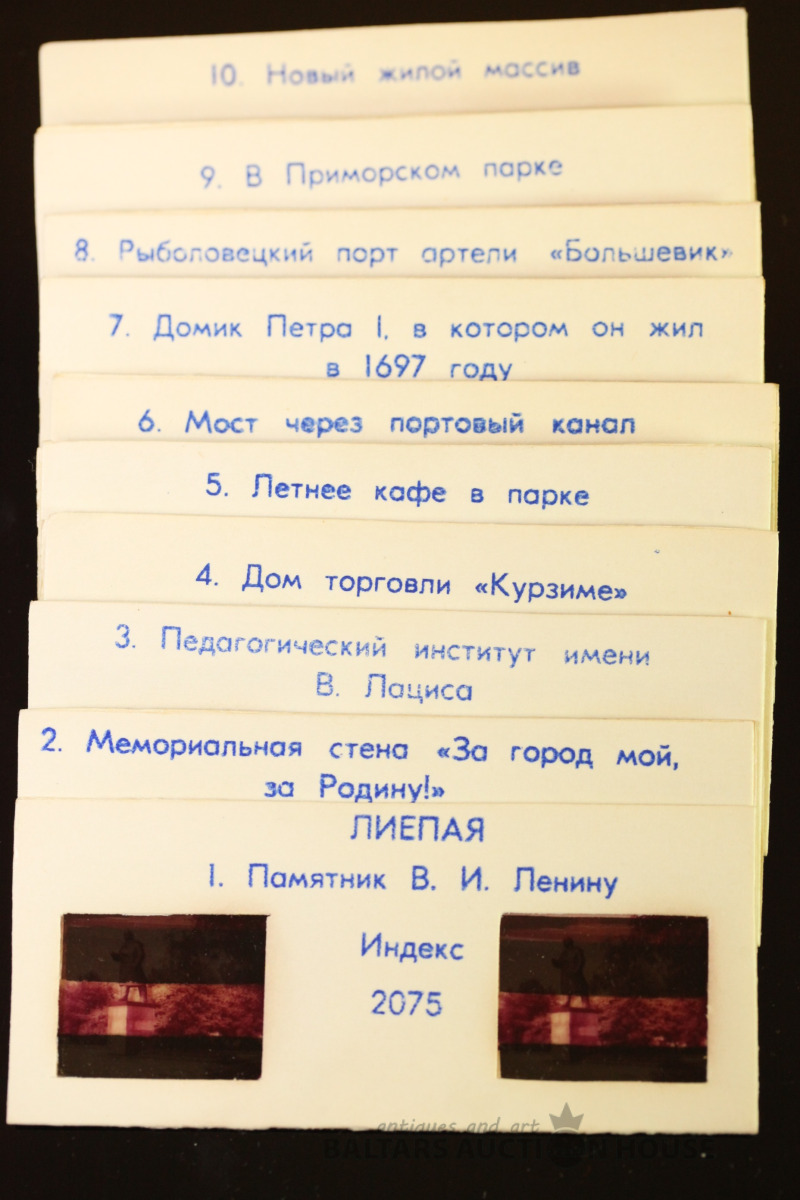 10. Новый жилой массив
9. В Приморском парке
8. Рыболовецкий порт артели «Большевик»
7. Домик Петра I, в котором он жил
в 1697 году
6. Мост через портовый канал
5. Летнее кафе в парке
4. Дом торговли «Курзиме»
3. Педагогический институт имени
В. Лациса
2. Мемориальная стена «За город мой,
за Родину!»
ЛИЕПАЯ
1. Памятник В. И. Ленину
Индекс
2075
antiques and art
BALTARS AUCTION HOUSE